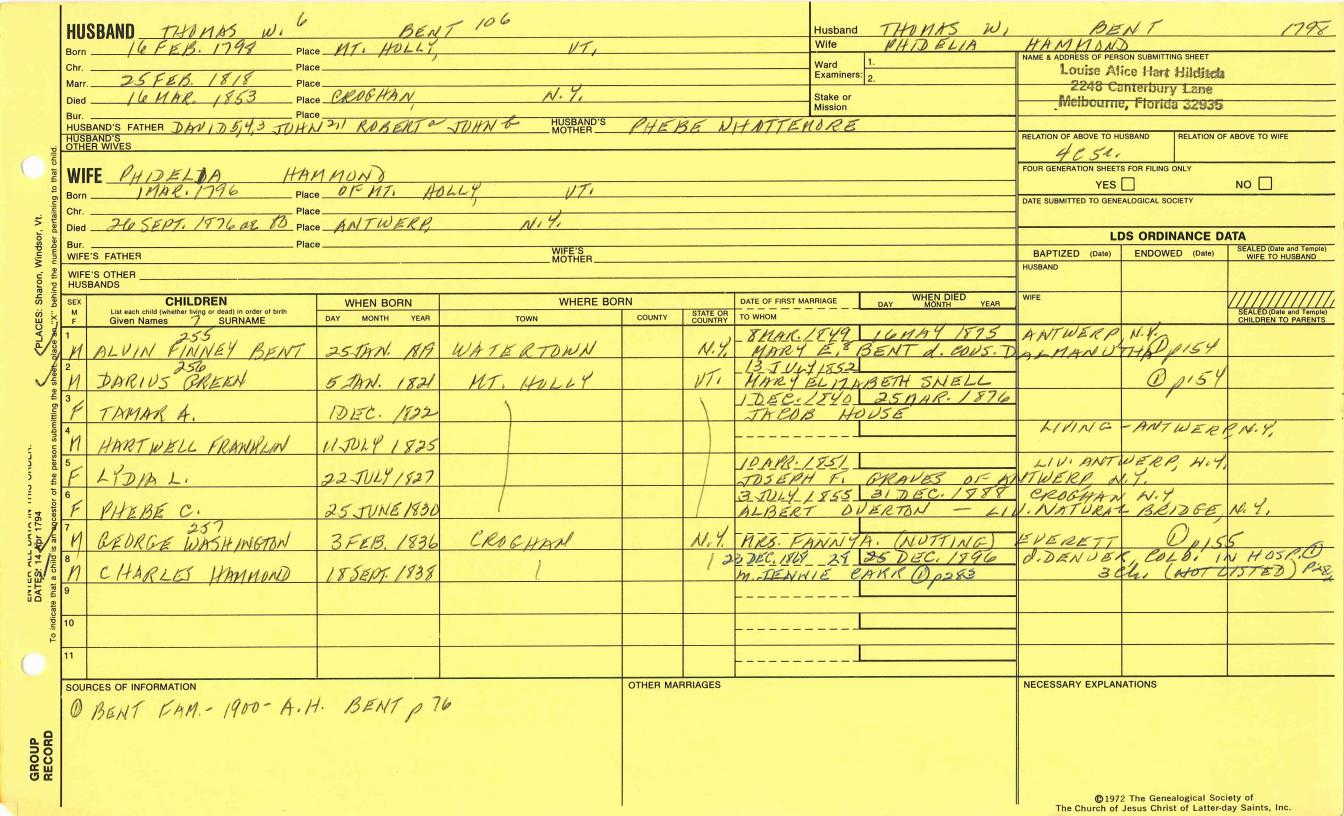 HUSBAND THOMAS W. 6 BENT 106
Born 16 FEB. 1798 Place MT. HOLLY, VT.
Chr. Place
Marr. 25 FEB. 1818 Place
Died 16 MAR. 1853 Place CROGHAN, N.Y.
Bur. Place
HUSBAND'S FATHER DAVID 5,4,3 JOHN 2,1 ROBERT a JOHN b HUSBAND'S MOTHER PHEBE WHATTEMORE
HUSBAND'S OTHER WIVES
WIFE PHIDELIA HAMMOND
Born 1 MAR. 1796 Place OF MT. HOLLY, VT.
Chr. Place
Died 26 SEPT. 1876 or 80 Place ANTWERP, N.Y.
Bur. Place
WIFE'S FATHER WIFE'S MOTHER
WIFE'S OTHER HUSBANDS
Husband THOMAS W. BENT 1798
Wife PHIDELIA HAMMOND
Ward Examiners: 1.
2.
Stake or Mission
NAME & ADDRESS OF PERSON SUBMITTING SHEET
Louise Alice Hart Hilditch
2248 Canterbury Lane
Melbourne, Florida 32935
RELATION OF ABOVE TO HUSBAND RELATION OF ABOVE TO WIFE
FOUR GENERATION SHEETS FOR FILING ONLY
YES NO
DATE SUBMITTED TO GENEALOGICAL SOCIETY
LDS ORDINANCE DATA
BAPTIZED (Date) ENDOWED (Date) SEALED (Date and Temple) WIFE TO HUSBAND
HUSBAND
WIFE
SEALED (Date and Temple) CHILDREN TO PARENTS
SEX M F
CHILDREN
List each child (whether living or dead) in order of birth
Given Names 7 SURNAME
WHEN BORN
DAY MONTH YEAR
WHERE BORN
TOWN COUNTY STATE OR COUNTRY
DATE OF FIRST MARRIAGE
TO WHOM
WHEN DIED
DAY MONTH YEAR
255
1 8 MAR. 1849 16 MAY 1895 ANTWERP, N.Y.
M ALVIN FINNEY BENT 25 JAN. 1819 WATERTOWN N.Y. MARY E. 8 BENT d. COUS. DALMANUTHA ① p154
256
2 13 JULY 1852
M DARIUS GREEN 5 JAN. 1821 MT. HOLLY VT. MARY ELIZABETH SNELL ① p154
3 1 DEC. 1840 25 MAR. 1876
F TAMAR A. 1 DEC. 1822 JACOB HOUSE
4 LIVING - ANTWERP, N.Y.
M HARTWELL FRANKLIN 11 JULY 1825
5 10 APR. 1851 LIV. ANTWERP, N.Y.
F LYDIA L. 22 JULY 1827 JOSEPH F. GRAVES OF ANTWERP, N.Y.
6 3 JULY 1855 31 DEC. 1888 CROGHAN N.Y.
F PHEBE C. 25 JUNE 1830 ALBERT OVERTON — LIV. NATURAL BRIDGE, N.Y.
257
7
M GEORGE WASHINGTON 3 FEB. 1836 CROGHAN N.Y. MRS. FANNY A. (NUTTING) EVERETT ① p155
8 23 DEC. 1869 25 DEC. 1896 d. DENVER, COLO. IN HOSP. ①
M CHARLES HAMMOND 18 SEPT. 1838 m. JENNIE CARR ① p283 3 Ch. (NOT LISTED)
9
10
11
SOURCES OF INFORMATION
① BENT FAM. - 1900 - A.H. BENT p 76
OTHER MARRIAGES
NECESSARY EXPLANATIONS
©1972 The Genealogical Society of
The Church of Jesus Christ of Latter-day Saints, Inc.
PLACES: Sharon, Windsor, Vt.
DATES: 14 Apr 1794
To indicate that a child is an ancestor of the person submitting the sheet, place an "X" behind the number pertaining to that child.
GROUP RECORD